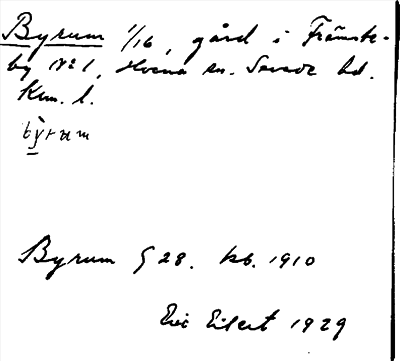 Byrum 1/16, gård i Främste-
by No 1, Hvena sn. Sevede hd.
Klm. l.
byrum
Byrum § 28. kb. 1910
Eric Eilert 1929